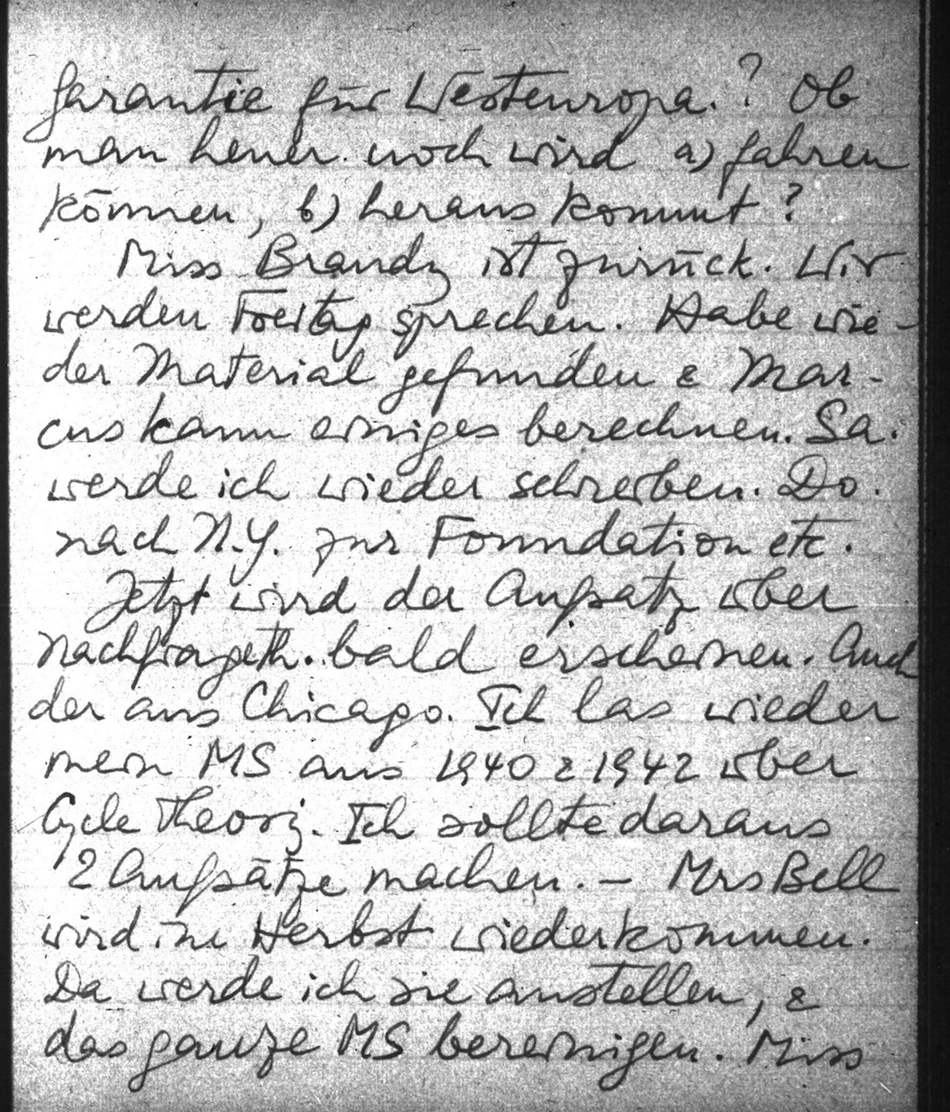 Garantie für Westeuropa.? Ob
man heuer noch wird a) fahren
können, b) heraus kommt?
Miss Brandy ist zurück. Wir
werden Freitag sprechen. Habe wie-
der Material gefunden & Mar-
cus kann einiges berechnen. Sa.
werde ich wieder schreiben. Do.
nach N.Y. zur Foundation etc.
Jetzt wird der Aufsatz über
Nachfrageth. bald erscheinen. Auch
der aus Chicago. Ich las wieder
mein MS aus 1940 & 1942 über
Cycle Theory. Ich sollte daraus
2 Aufsätze machen. – Mrs Bell
wird im Herbst wiederkommen.
Da werde ich sie anstellen, &
das ganze MS bereinigen. Miss